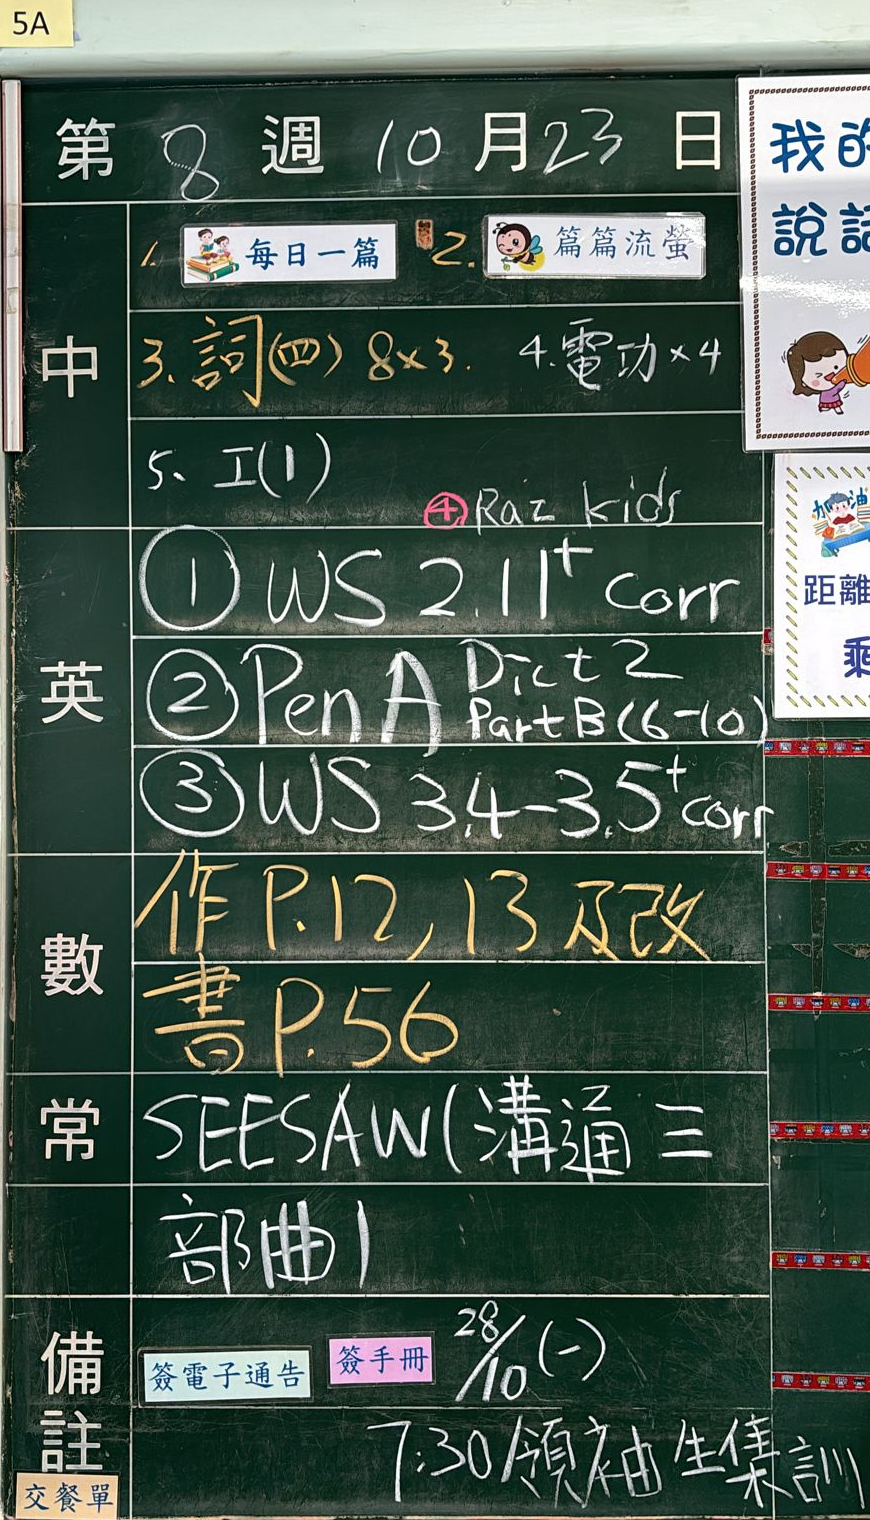 5A
第 8 週 10 月 23 日
中
1. 每日一篇 2. 篇篇流螢
3. 詞(四) 8×3. 4. 電功×4
5. 工(1)
④ Raz kids
英
① WS 2.11+ corr
② Pen A Dict 2 Part B (6-10)
③ WS 3.4-3.5+ corr
數
作 P.12, 13 及改
書 P.56
常
SEESAW(溝通三
部曲)
備註
簽電子通告 簽手冊 28/10 (一)
7:30 領袖生集訓
交餐單
我的
說話
加油
距離
剩